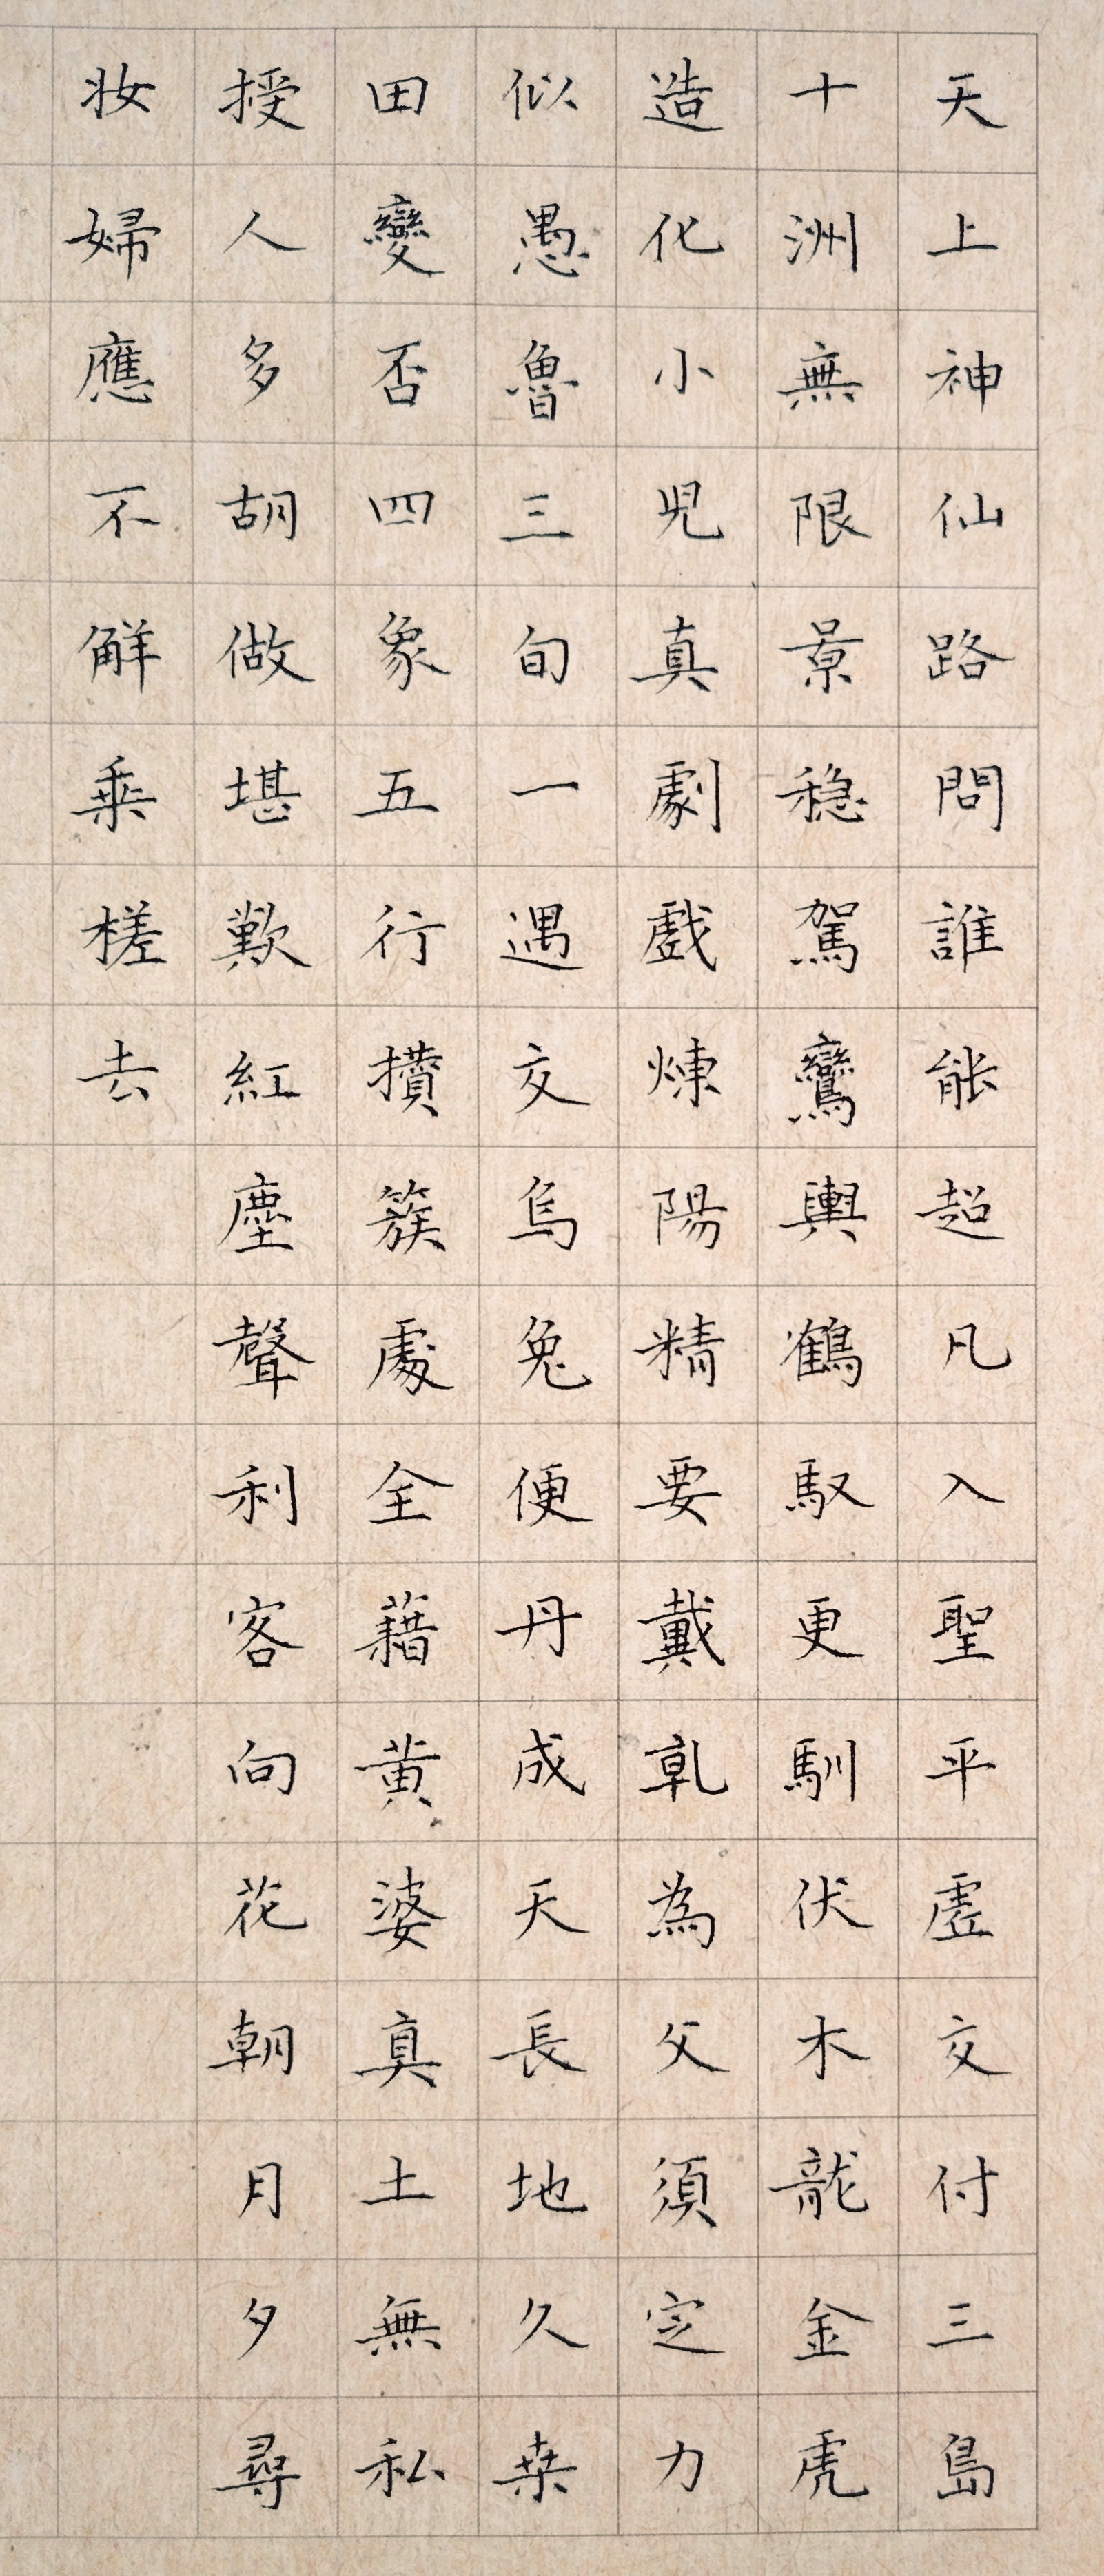 天上神仙路問誰能超凡入聖平虛交付三島
十洲無限景穩駕鸞輿鶴馭更馴伏木龍金虎
造化小兒真劇戲煉陽精要戴乹為父須定力
似愚魯三旬一遇交烏兔便丹成天長地久桒
田變否四象五行攢簇處全藉黃婆真土無私
授人多胡做堪歎紅塵聲利客向花朝月夕尋
妝婦應不解乘槎去